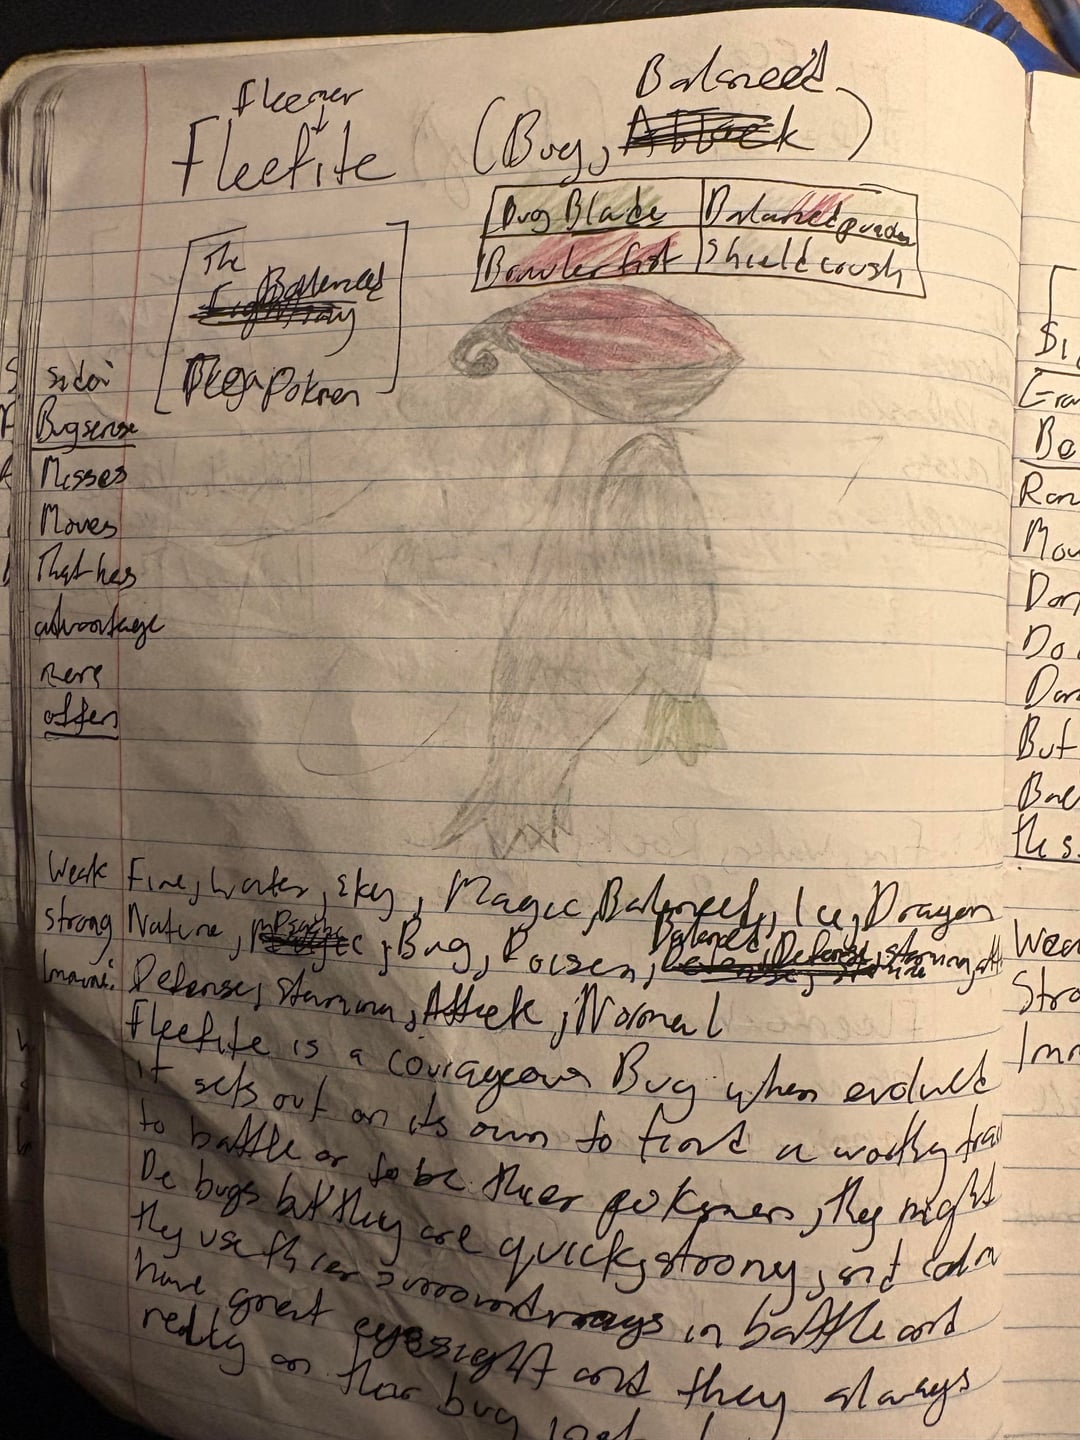 Fleemer
Fleefite
(Bug, Balanced)
Bug Blade
Balanced
Brawler fist
Shield crush
The
Balanced
Pokmen
Bugsense
Misses
Moves
That has
advantage
more
offen
Weak Fire, Water, Sky, Magic, Balanced, Ice, Dragon
strong Nature, Bug, Poisen, Balanced, Defense, stamina,
Immune: Defense, stamina, Attack, Normal
Fleefite is a courageous Bug when evolved
it sets out on its own to find a worthy
to battle or to be thier pokemen, they might
Be bugs but they are quick, strong, and
they use thier surroundings in battle and
have great eyesight and they always
really on thier bug
Ran
But
Stro
Imm